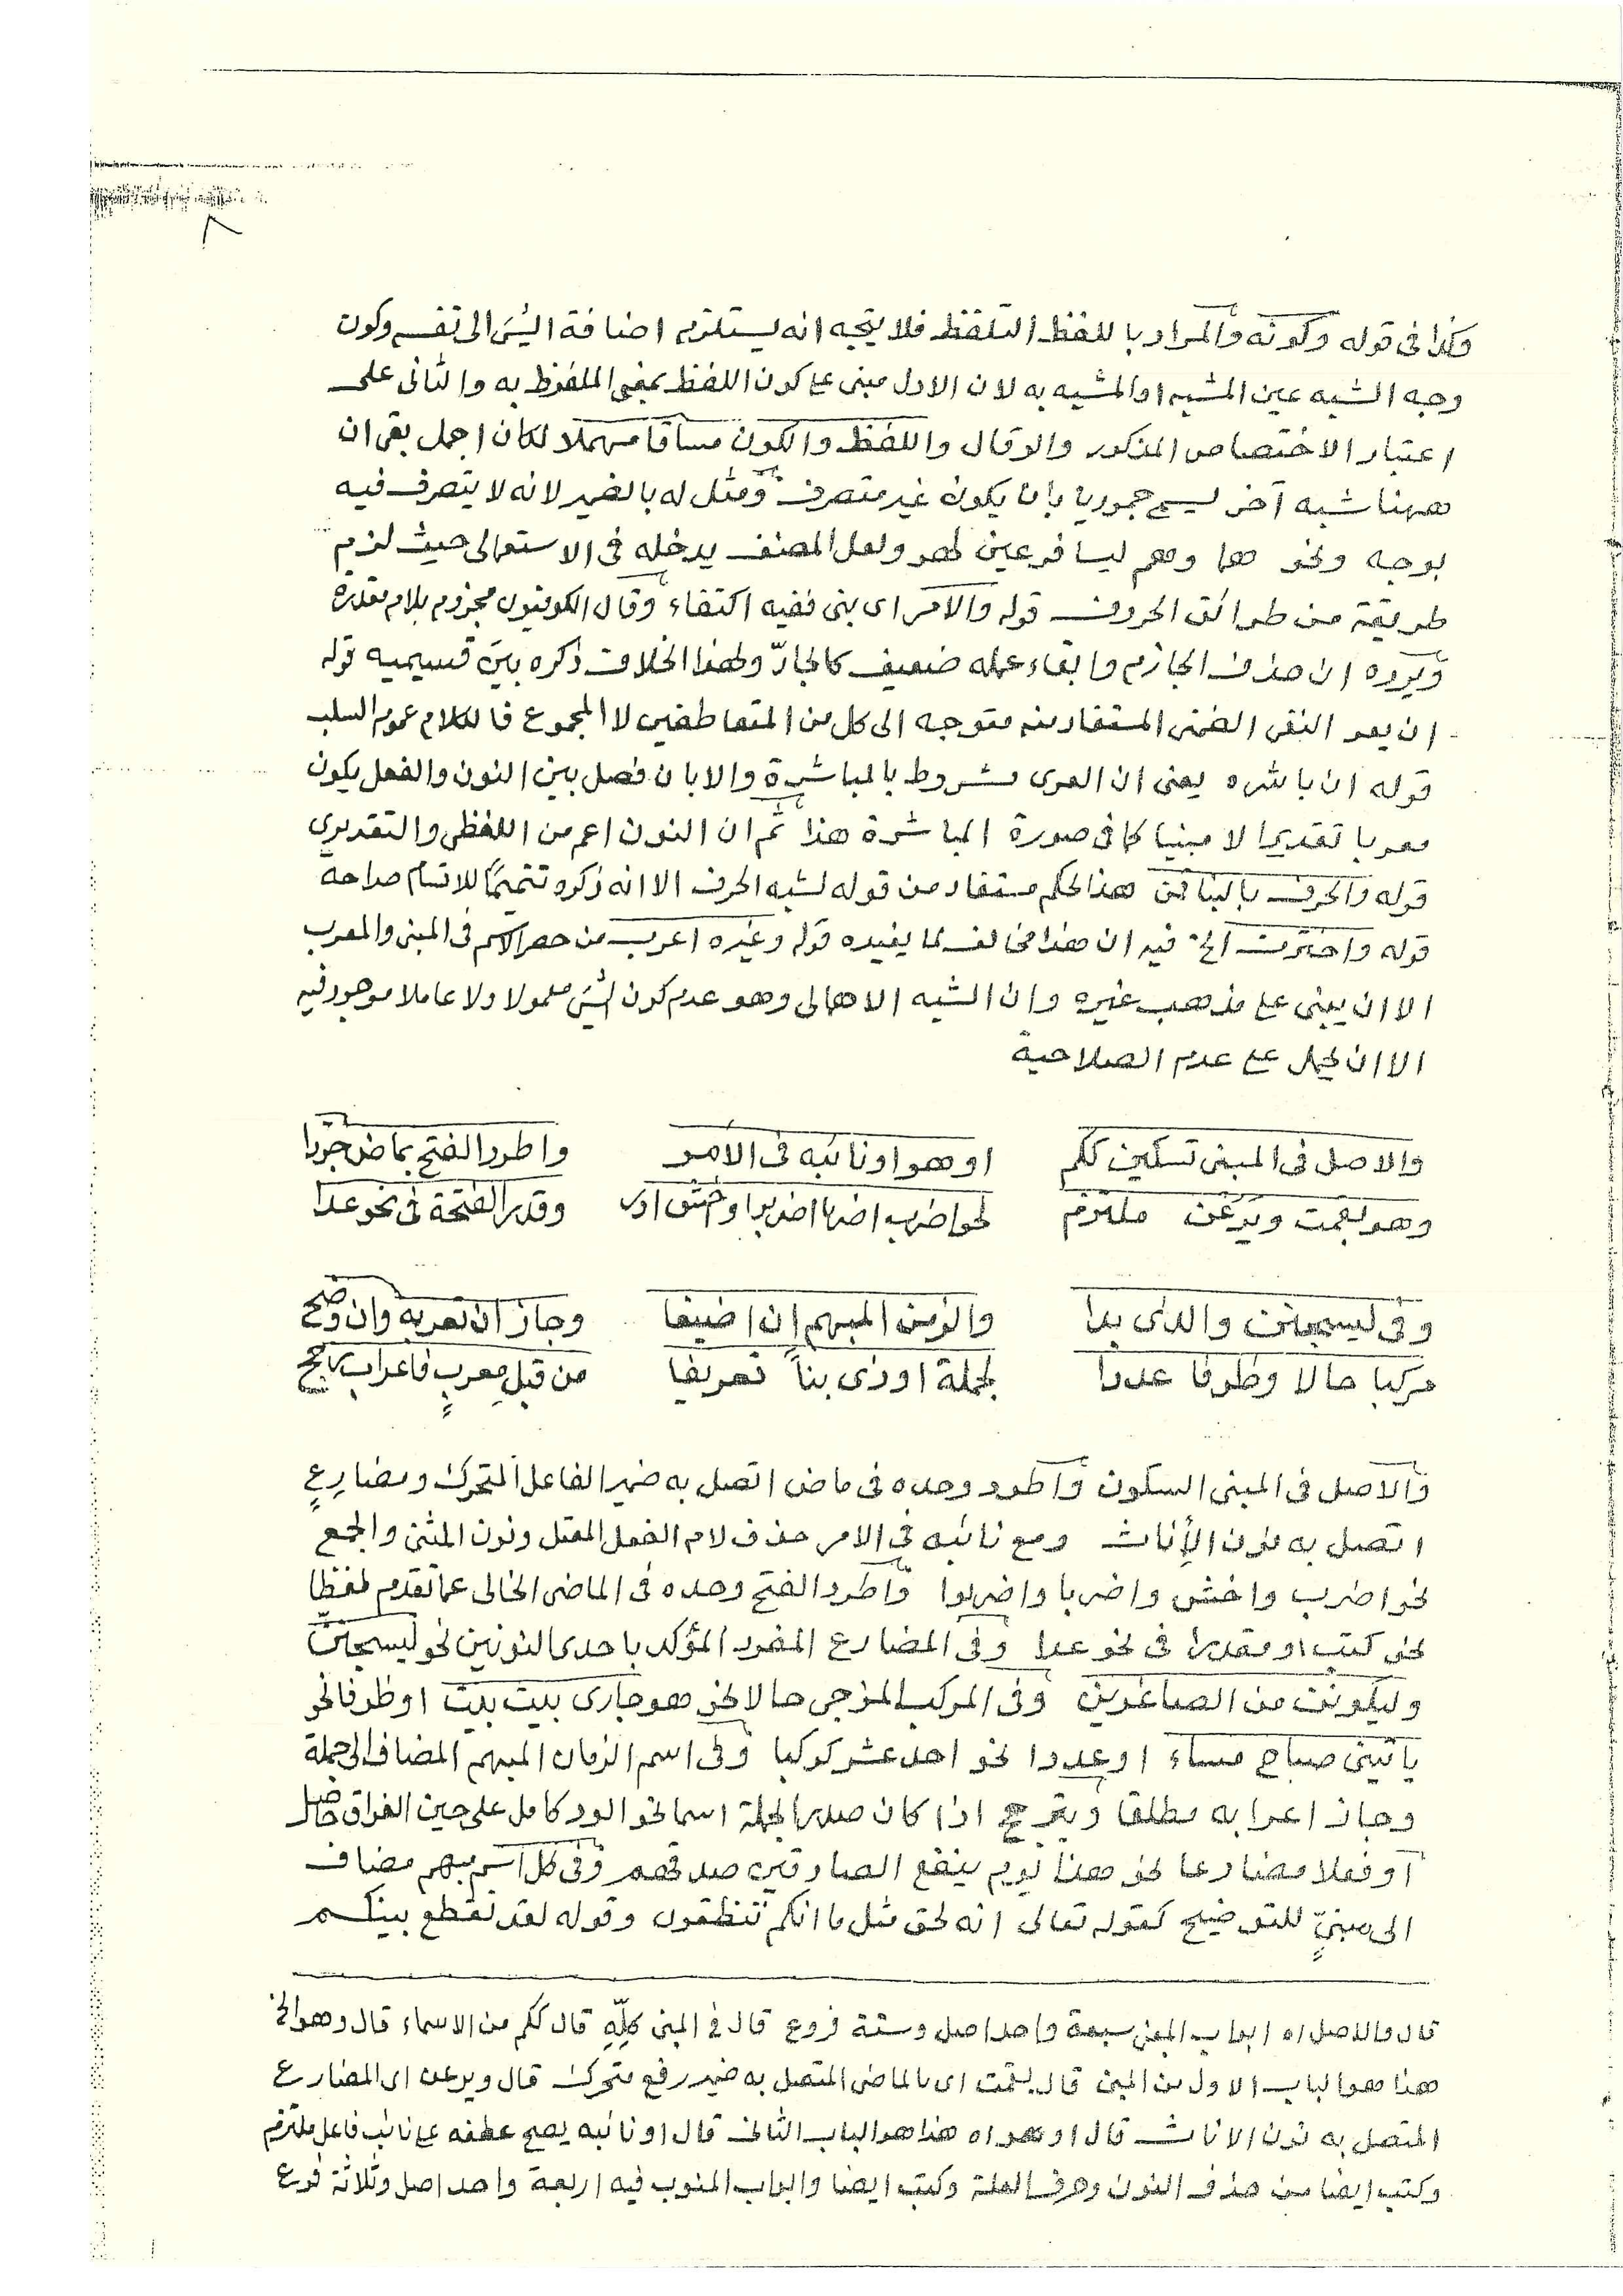 ٨
وكذا فى قوله وكونه والمراد باللفظ التلفظ فلا يتجه انه يستلزم اضافة الشئ الى نفسه وكون
وجه الشبه عين المشبه او المشبه به لان الاول مبنى على كون اللفظ بمعنى الملفوظ به والثانى على
اعتبار الاختصاص المذكور والا وقال واللفظ والكون مساقا مهملا لكان اجمل بقى ان
ههنا شبه آخر يسمى جموديا بان يكون غير متصرف ومثل له بالضمير لانه لا يتصرف فيه
بوجه ونحو هما وهم ليسا فرعين لهو ولعل المصنف يدخله فى الاستعمالى حيث لزم
طريقة من طرائق الحروف قوله والامر اى بنى ففيه اكتفاء وقال الكوفيون مجزوم بلام مقدرة
ويرده ان حذف الجازم وابقاء عمله ضعيف كالجارّ ولهذا الخلاف ذكره بين قسيميه قوله
ان يعر النفى الضمنى المستفاد منه متوجه الى كل من المتعاطفين لا المجموع فالكلام عموم السلب
قوله ان باشره يعنى ان العرى مشروط بالمباشرة والا بان فصل بين النون والفعل يكون
معربا تقديرا لا مبنيا كما فى صورة المباشرة هذا ثم ان النون اعم من اللفظى والتقديرى
قوله والحرف بالبنا قمن هذا الحكم مستفاد من قوله لشبه الحرف الا انه ذكره تتميما للاقسام صراحة
قوله واخترت الخ فيه ان هذا مخالف لما يفيده قوله وغيره اعرب من حصر الاسم فى المبنى والمعرب
الا ان يبنى على مذهب غيره وان الشبه الاهمالى وهو عدم كون الشئ معمولا ولا عاملا موجود فيه
الا ان يحمل على عدم الصلاحية
والاصل فى المبنى تسكين ككم او هو او نائبه فى الأمر واطرد الفتح بماض جردا
وهو بقمت ويرعن ملتزم نحو اضرب اضربا اضربوا واخش وقدر الفتحة فى نحو عدا
وفى ليسجنن والذى بدا والزمن المبهم إن اضيفا وجاز ان تعربه وان وضح
مركبا حالا وظرفا عددا لجملة او ذى بناً تعريفا من قبلِ معربٍ فاعراب رجح
والاصل فى المبنى السكون واطرد وحده فى ماض اتصل به ضمير الفاعل المتحرك ومضارعٍ
اتصل به نون الأناث ومع نائبه فى الامر حذف لام الفعل المعتل ونون المثنى والجمع
نحو اضرب واخش واضربا واضربوا واطرد الفتح وحده فى الماضى الخالى عما تقدم لفظا
نحو كتب او مقدرا فى نحو عدا وفى المضارع المفرد المؤكد باحدى النونين نحو ليسجننّ
وليكونن من الصاغرين وفى المركب المزجى حالا نحو هو جارى بيت بيت او ظرفا نحو
يأتينى صباح مساء او عددا نحو احد عشر كوكبا وفى اسم الزمان المبهم المضاف الى جملة
وجاز اعرابه مطلقا ويترجح اذا كان صدر الجملة اسما نحو الود كامل على حين الفراق حاصل
او فعلا مضارعا نحو هذا يوم ينفع الصادقين صدقهم وفى كل اسم مبهم مضاف
الى مبنىٍّ للتوضيح كقوله تعالى انه لحق مثل ما انكم تنطقون وقوله لقد تقطع بينكم
قال والاصل اه ابواب المبنى سبعة واحد اصل وستة فروع قال فى المبنى كلِّهِ قال ككم من الاسماء قال وهو الخ
هذا هو الباب الاول من المبنى قال بقمت اى بالماضى المتصل به ضمير رفع متحرك قال ويرعن اى المضارع
المتصل به نون الاناث قال او هو اه هذا هو الباب الثانى قال او نائبه يصح عطفه على نائب فاعل ملتزم
وكتب ايضا من حذف النون وحرف العلة وكتب ايضا والباب المنوب فيه اربعة واحد اصل وثلاثة فروع